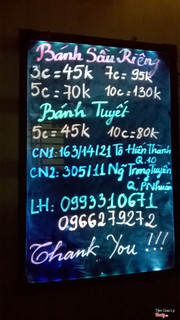 Bánh Sầu Riêng
3c = 45k 7c = 95k
5c = 70k 10c = 130k
Bánh Tuyết
5c = 45k 10c = 80k
CN1: 163/14/21 Tô Hiến Thành
Q.10
CN2: 305/11 Ng Trọng Tuyển
Q. P.Nhuận
LH: 0993310671
0966279272
Thank You !!!